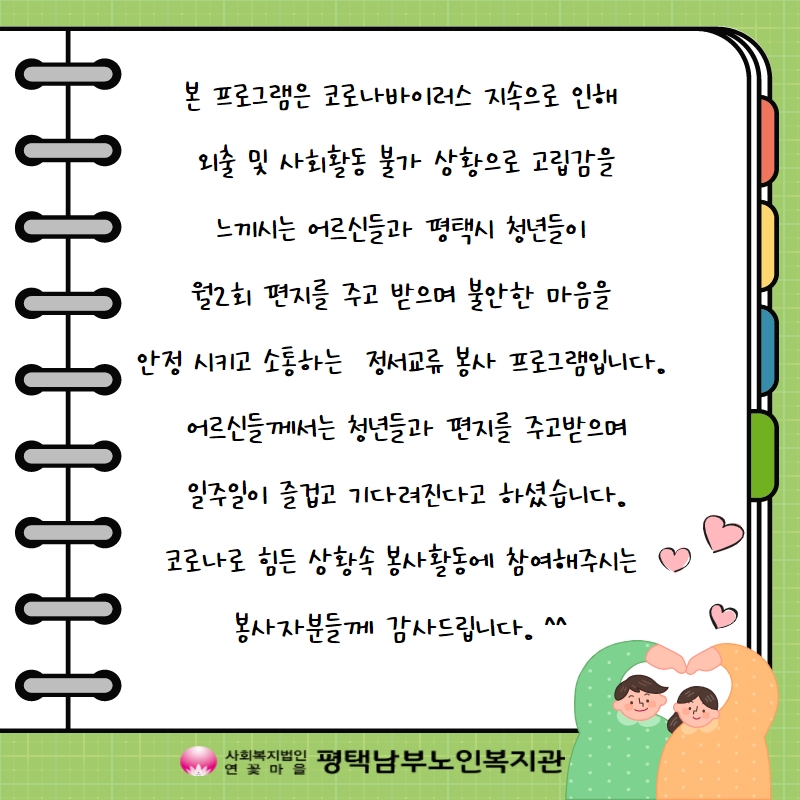 본 프로그램은 코로나바이러스 지속으로 인해
외출 및 사회활동 불가 상황으로 고립감을
느끼시는 어르신들과 평택시 청년들이
월2회 편지를 주고 받으며 불안한 마음을
안정 시키고 소통하는 정서교류 봉사 프로그램입니다.
어르신들께서는 청년들과 편지를 주고받으며
일주일이 즐겁고 기다려진다고 하셨습니다.
코로나로 힘든 상황속 봉사활동에 참여해주시는
봉사자분들께 감사드립니다. ^^
사회복지법인
연꽃마을
평택남부노인복지관